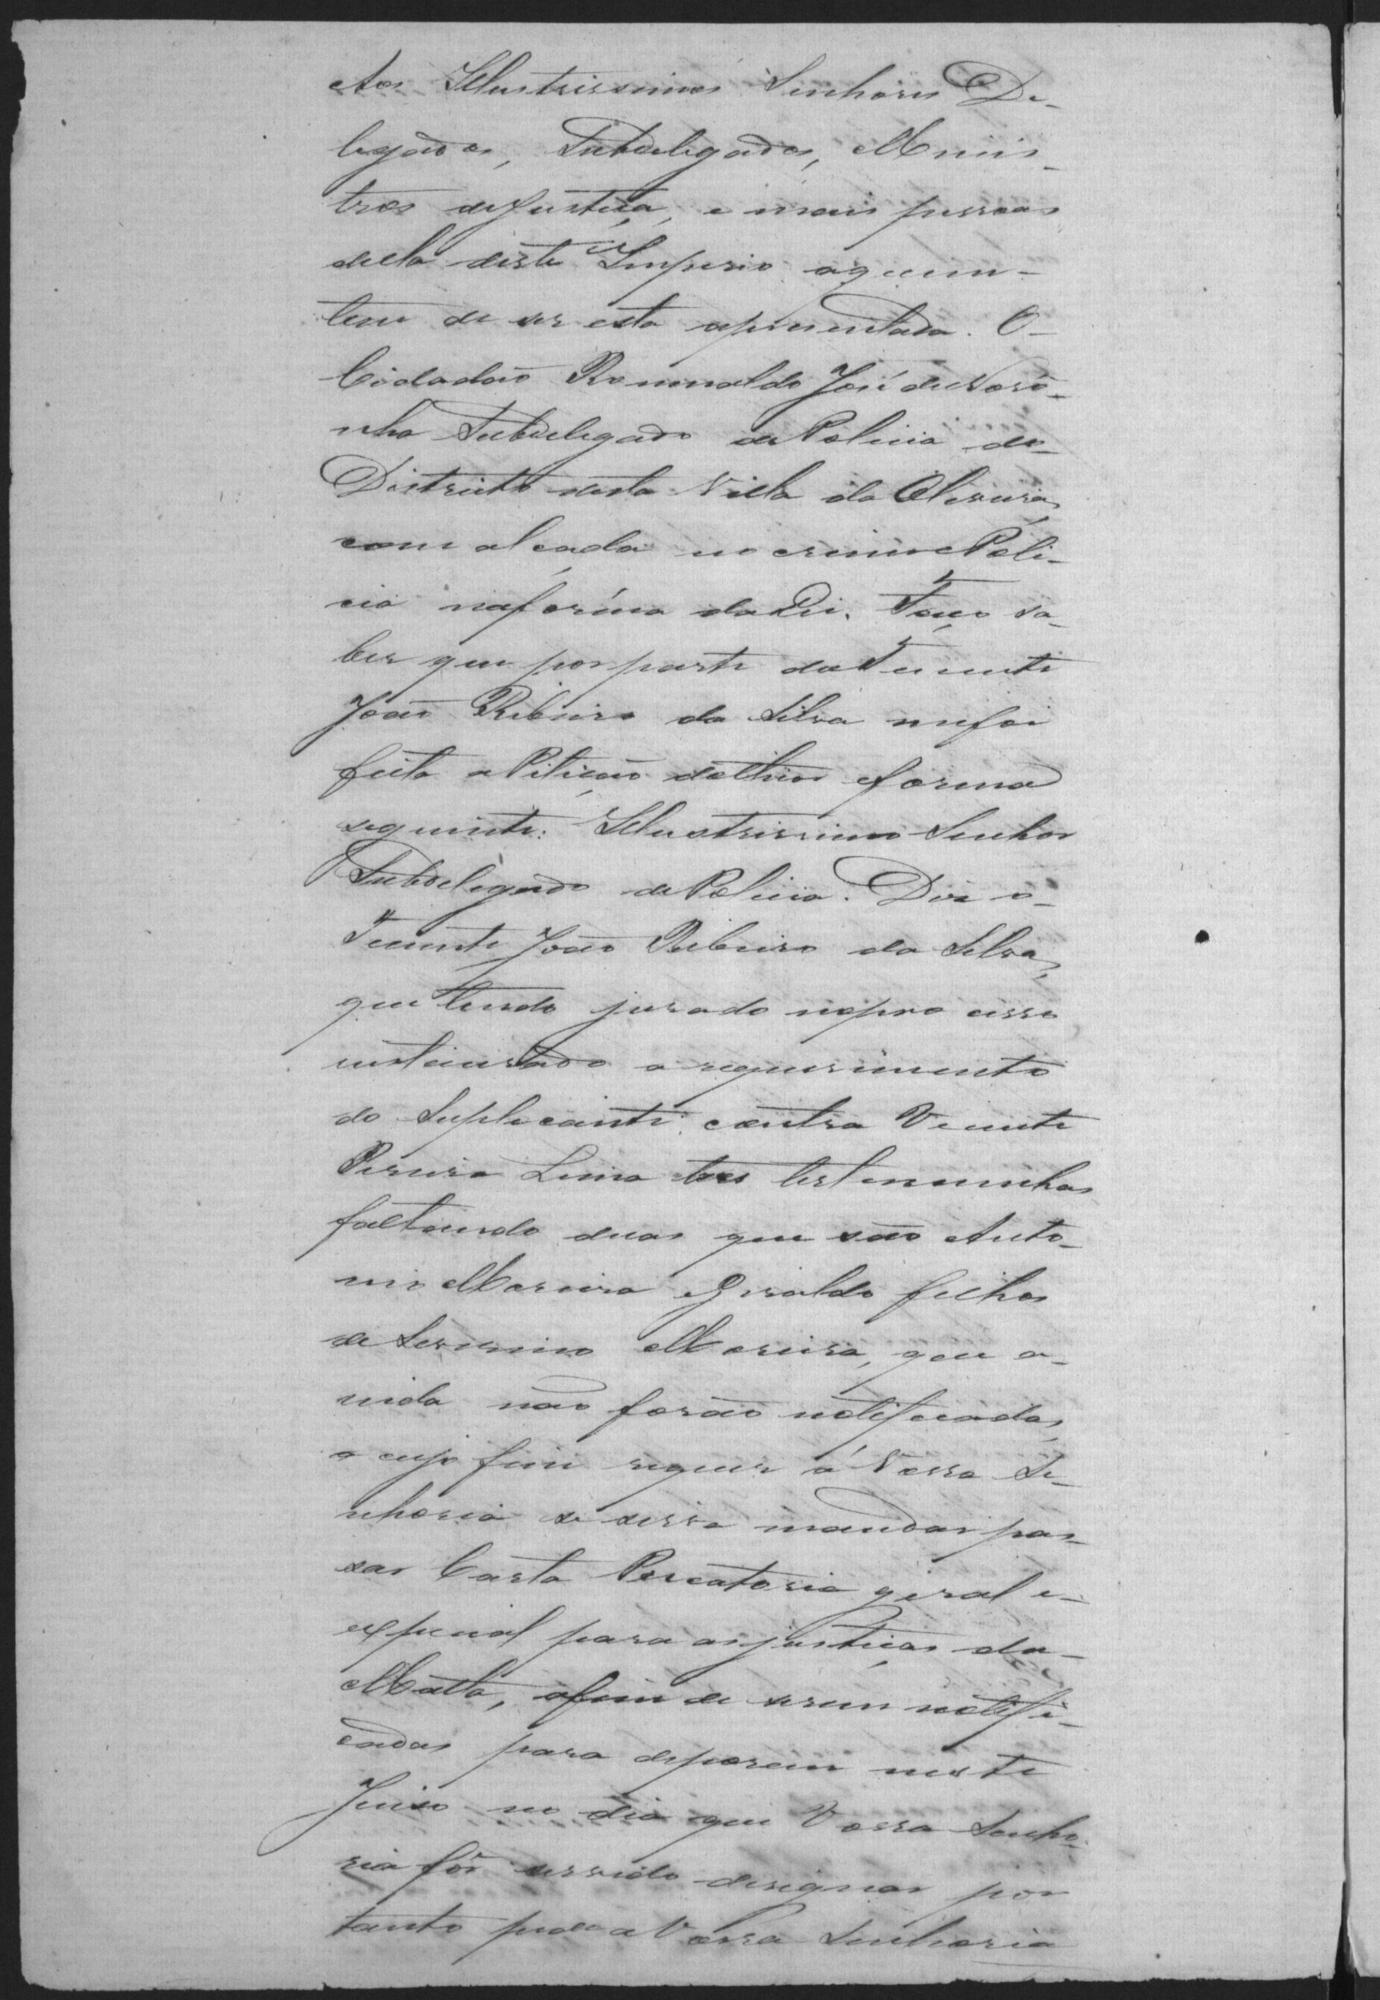 Aos Illustrissimos Senhores De-
legados, Subdelegados, Minis-
tros de Justiça, e mais pessoas
della deste Imperio aquem-
tem de ser esta apresentada. O-
Cidadão Romualdo José de Noro-
nha Subdelegado de Policia do-
Districto desta Villa da Oliveira,
com alçada no crime e Poli-
cia na fórma da Lei. Faço sa-
ber que por parte do Tenente
João Ribeiro da Silva me foi
feita a Petição do thior e forma
seguinte: Illustrissimo Senhor
Subdelegado de Policia. Diz o-
Tenente João Ribeiro da Silva,
que tendo jurado no pro cesso
instaurado a requerimento
do Suplicante contra Vicente
Pereira Lima tres testemunhas
faltando duas que são Anto-
nio Moreira e Giraldo filhos
de Severino Moreira, que a-
inda não forão notificadas,
a cujo fim requer á Vossa Se-
nhoria se sirva mandar pas-
sar Carta Precatoria geral e-
especial para as justiças da-
Matta, afim de serem notifi-
cadas para deporem neste
Juizo no dia que Vossa Senho-
ria fôr servido designar por
tanto pede a Vossa Senhoria